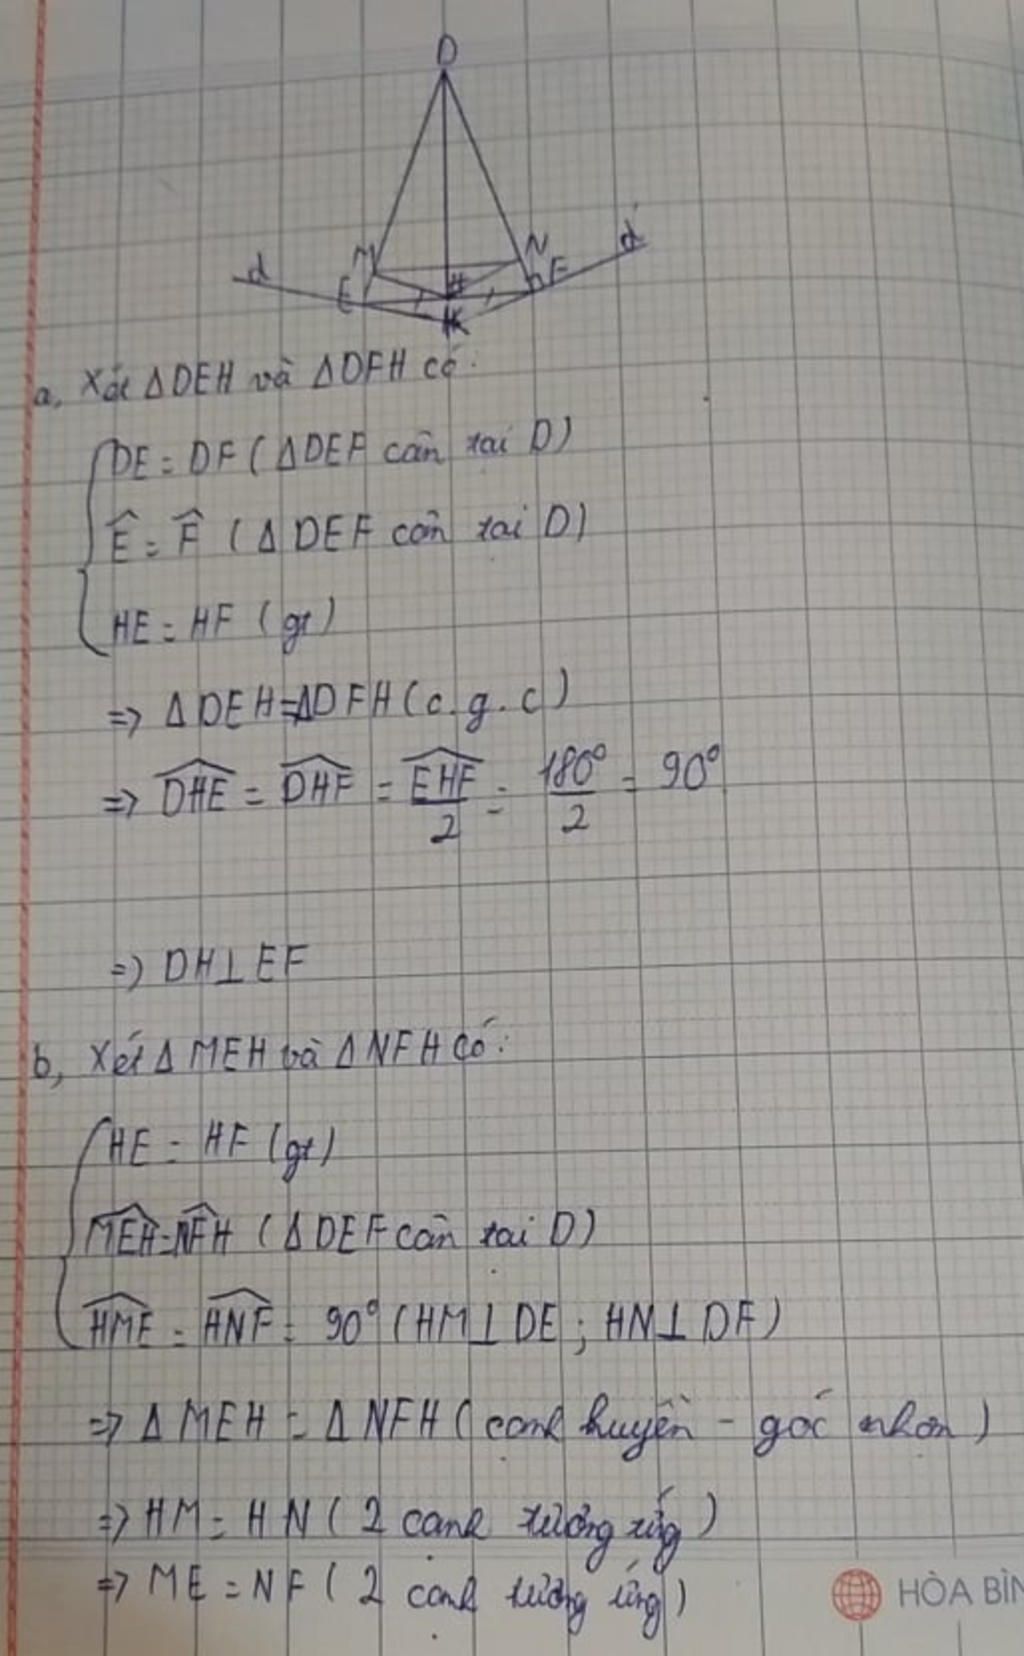 D
d
M
N
d'
E
H
F
K
a, Xét ΔDEH và ΔDFH có:
DE = DF (ΔDEF cân tại D)
Ê = F̂ (ΔDEF cân tại D)
HE = HF (gt)
=> ΔDEH = ΔDFH (c.g.c)
=> \widehat{DHE} = \widehat{DHF} = \frac{\widehat{EHF}}{2} = \frac{180°}{2} = 90°
=> DH⊥EF
b, Xét ΔMEH và ΔNFH có:
HE = HF (gt)
\widehat{MEH} = \widehat{NFH} (ΔDEF cân tại D)
\widehat{HME} = \widehat{HNF} = 90° (HM⊥DE; HN⊥DF)
=> ΔMEH = ΔNFH (cạnh huyền - góc nhọn)
=> HM = HN (2 cạnh tương ứng)
=> ME = NF (2 cạnh tương ứng)
HÒA BÌN